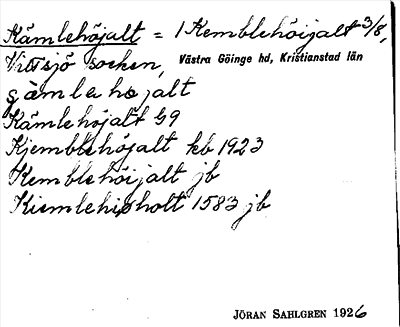 Kämlehöjalt = 1 Kemblehöijalt 3/8,
Vittsjö socken, Västra Göinge hd, Kristianstad län
gämlehöjalt
Kämlehöjalt G9
Kjemblehöjalt kb 1923
Kemblehöijalt jb
Kiemlehisholtt 1583 jb
JÖRAN SAHLGREN 1926